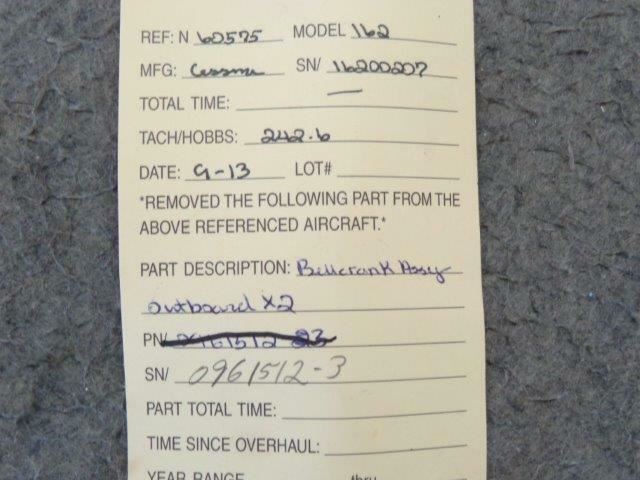 REF: N 60575 MODEL 162
MFG: Cessna SN/ 16200207
TOTAL TIME: —
TACH/HOBBS: 242.6
DATE: 9-13 LOT#
*REMOVED THE FOLLOWING PART FROM THE
ABOVE REFERENCED AIRCRAFT.*
PART DESCRIPTION: Bellcrank Assy
outboard x2
PN/
SN/ 0961512-3
PART TOTAL TIME:
TIME SINCE OVERHAUL:
YEAR RANGE thru